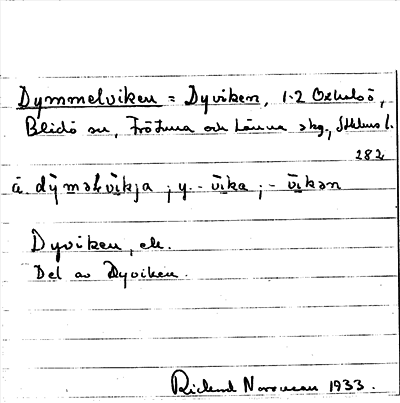 Dymmelviken = Dyviken, 1·2 Oxhalsö,
Blidö sn, Frötuna och Länna skg, Sthlms l.
282
ä. dy̆məlvikja ; y. - vika ; - vikən
Dyviken, ek.
Del av Dyviken.
Rickard Norrman 1933.